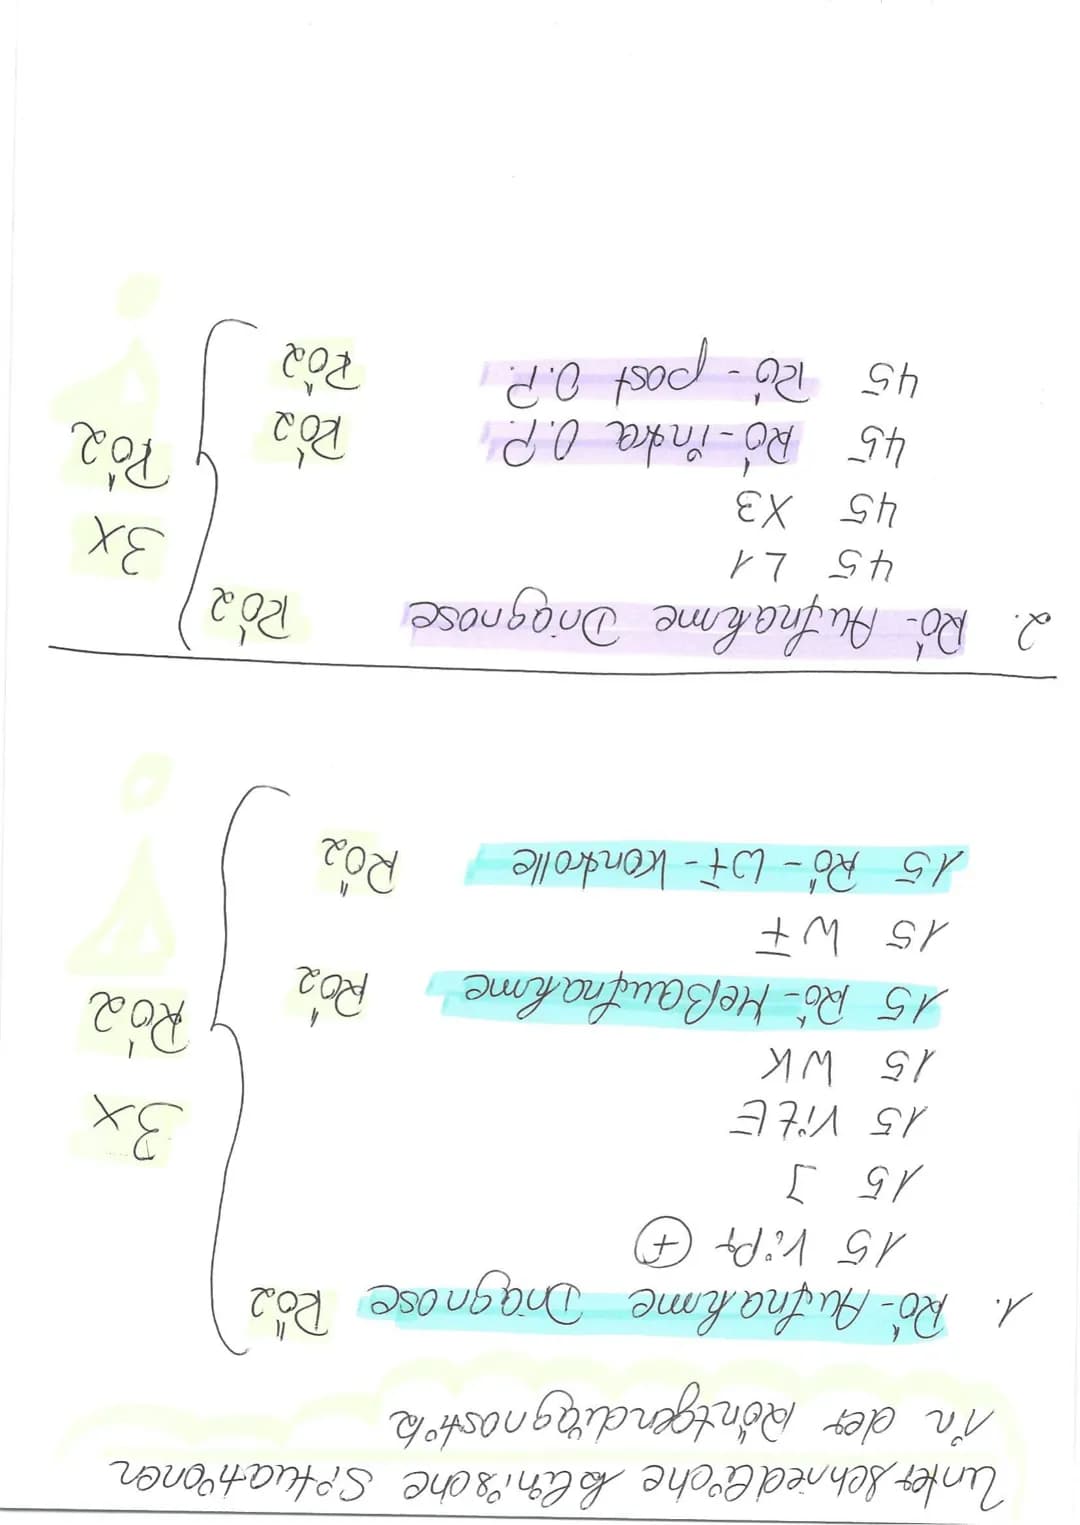 Unterschiedliche klinische Situationen
in der Röntgendiagnostik
1. Rö-Aufnahme Diagnose Rö2
15 ViPr +
15 J
15 VitE
15 WK
15 Rö-Meßaufnahme Rö2
15 WF
15 Rö-WF-Kontrolle Rö2
3x
Rö2
2. Rö-Aufnahme Diagnose Rö2
45 L1
45 X3
45 Rö-intra O.P. Rö2
45 Rö-post O.P. Rö2
3x
Rö2